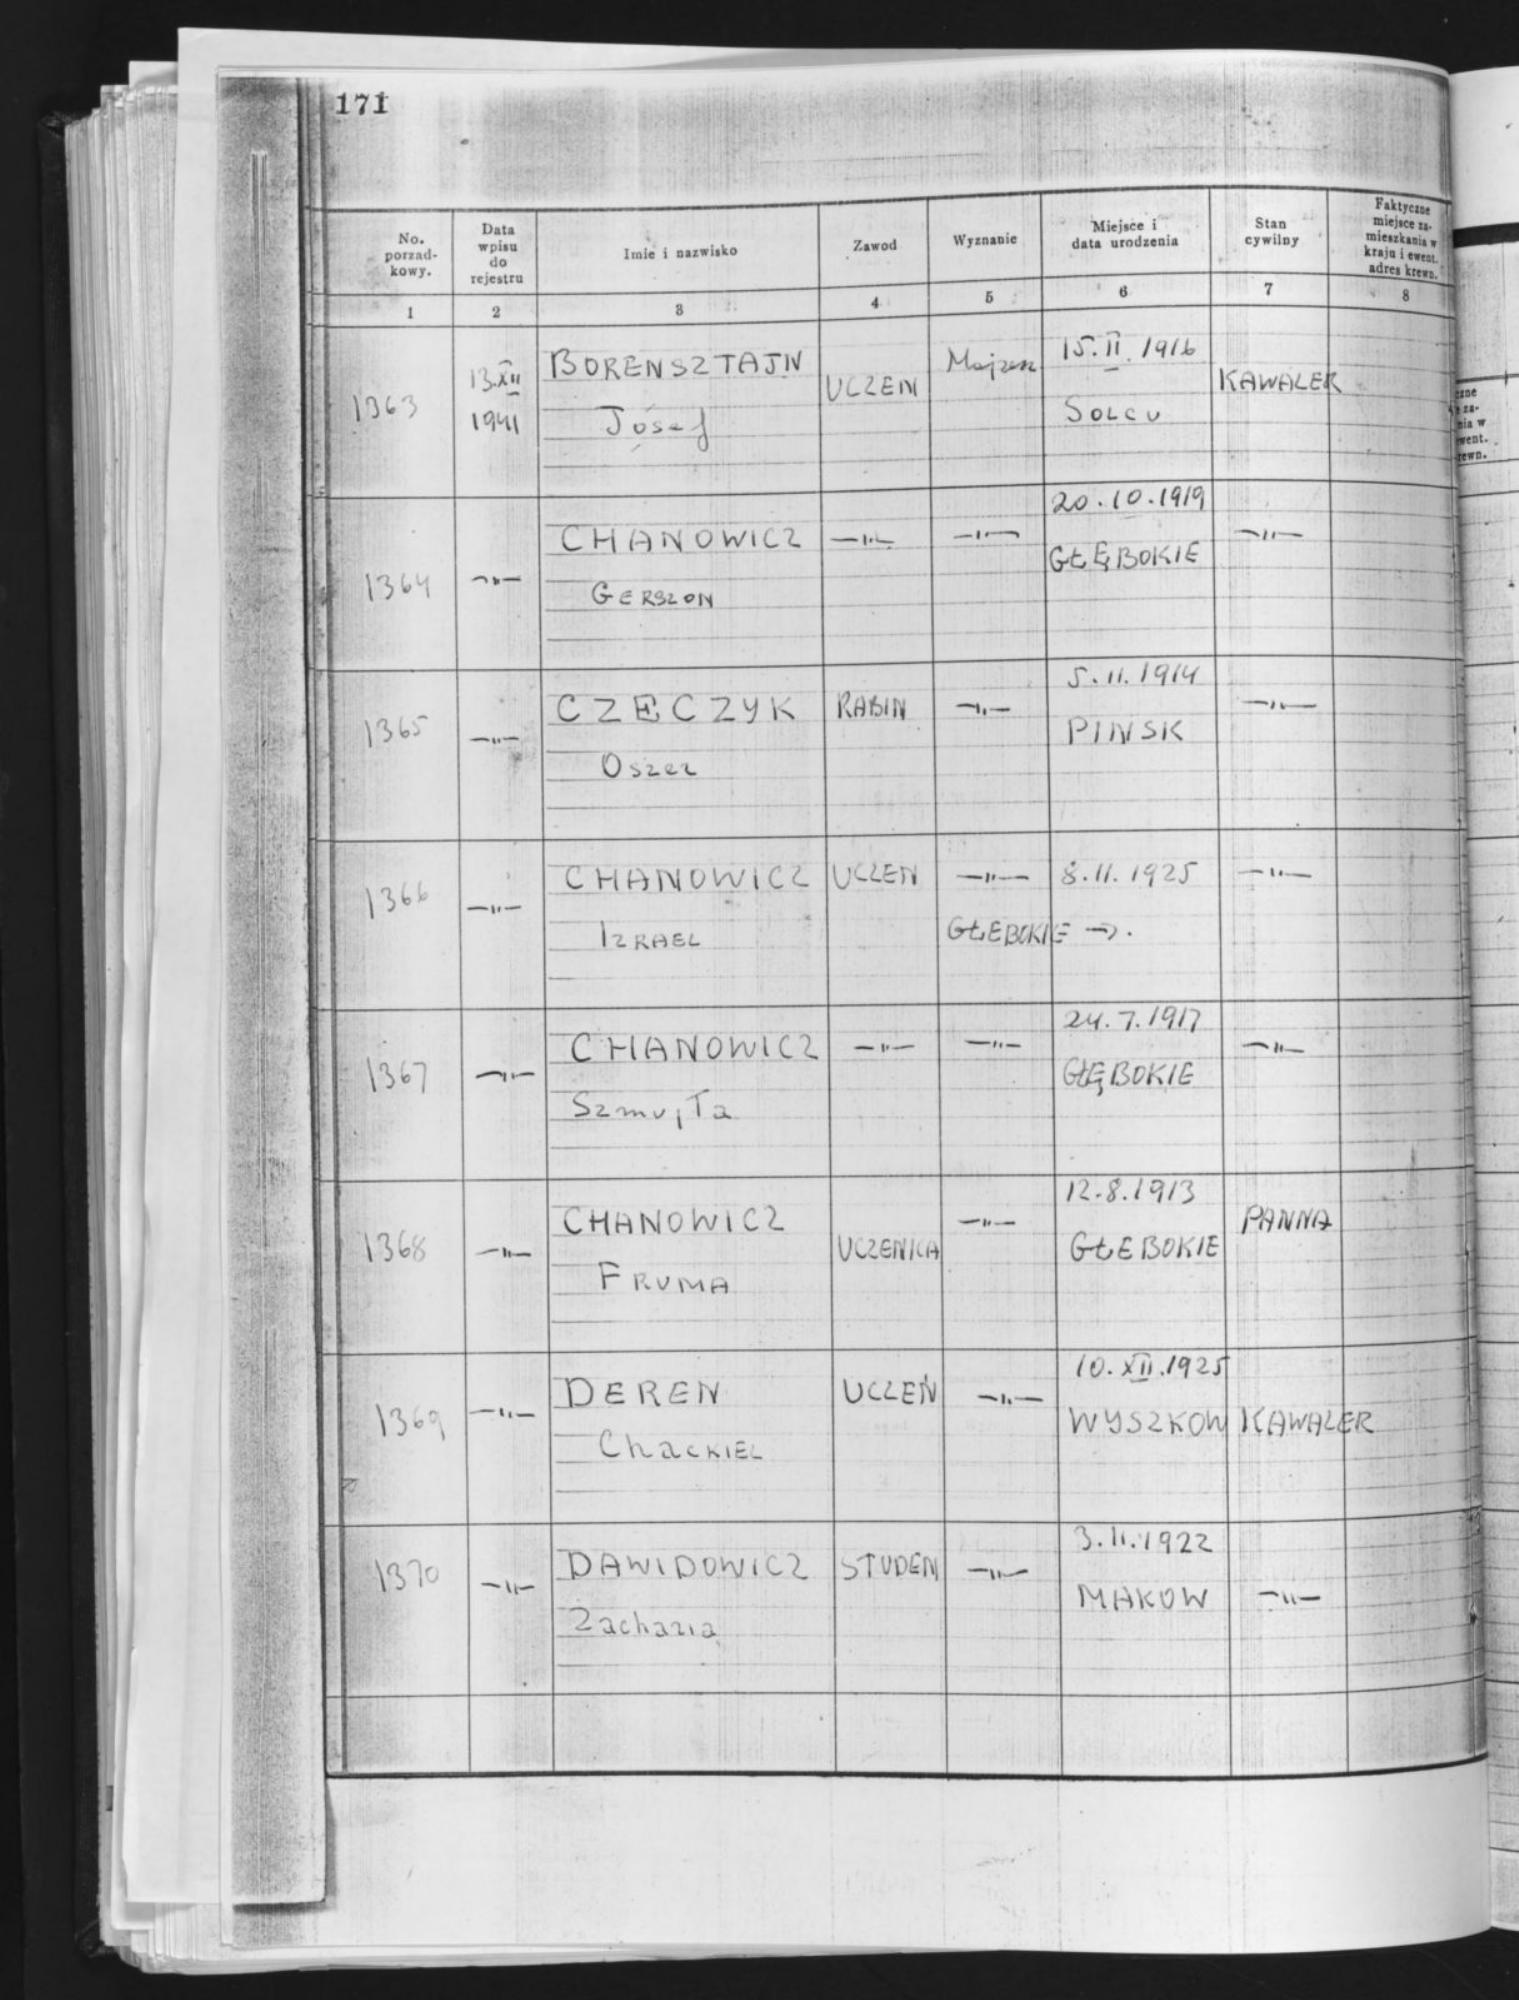 171
No. porzad- kowy.
Data wpisu do rejestru
Imie i nazwisko
Zawod
Wyznanie
Miejsce i data urodzenia
Stan cywilny
Faktyczne miejsce za- mieszkania w kraju i ewent. adres krewn.
1 2 3 4 5 6 7 8
1363 13.XII 1941 BORENSZTAJN UCZEN 15.II.1916 KAWALER
Józef SOLCU
1364 —"— CHANOWICZ —"— —"— 20.10.1919 —"—
GERSZON GŁĘBOKIE
1365 —"— CZECZYK RABIN —"— 5.11.1914 —"—
Oszer PINSK
1366 —"— CHANOWICZ UCZEN —"— 8.11.1925 —"—
IZRAEL GŁEBOKIE →.
1367 —"— CHANOWICZ —"— —"— 24.7.1917 —"—
Szmujła GŁĘBOKIE
1368 —"— CHANOWICZ UCZENICA —"— 12.8.1913 PANNA
FRUMA GŁEBOKIE
1369 —"— DEREN UCZEŃ —"— 10.XII.1925
ChacKIEL WYSZKOW KAWALER
1370 —"— DAWIDOWICZ STUDEN —"— 3.11.1922
Zacharia MAKOW —"—
zne
za-
nia w
ewent.
rewn.